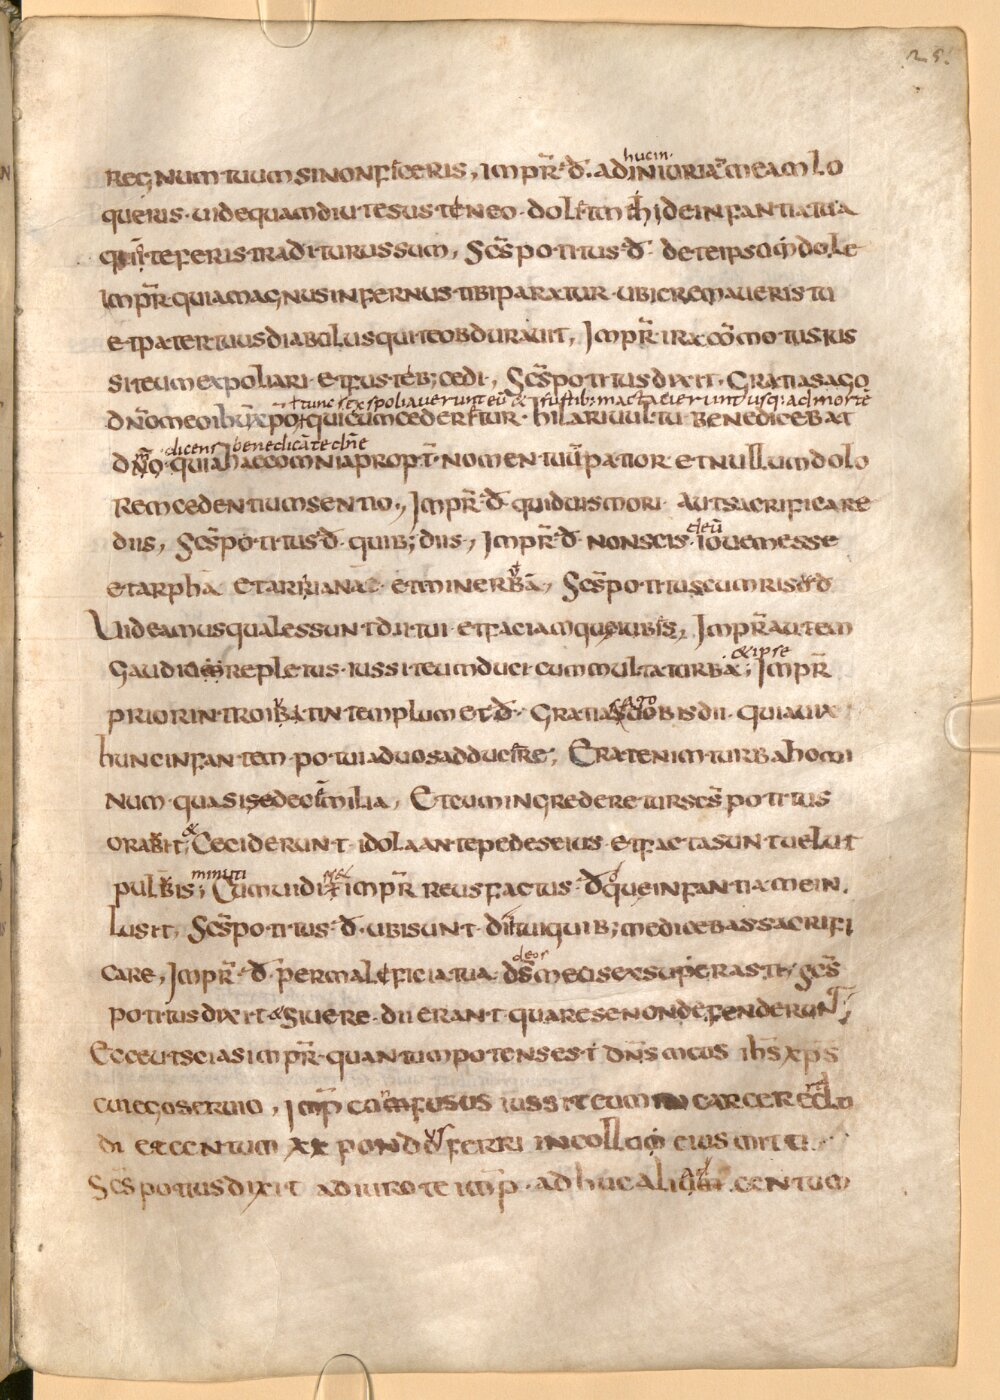 25.
regnum tuum sinonficeris, impr̃ d̃. adiniuriã meam lo
hucin.
queris. uidequamdiu tesusteneo. dol&tm̃ihi deinfantiatua
qui teferis traditurussum, Sc̃s potitus d̃ deteipsom̃dole
impr̃ quiamagnusinfernus tibiparatur. ubicremaueris tu
etpatertuusdiabolusquiteobdurauit, Impr̃ iracõmotusius
siteumexpoliari etfusteb; cedi, Sc̃s potitus dixit. Gratiasago
tuncexspoliauerunteũ & fustib; mactauerunt usq; ad mortẽ
dñomeoihũxpo quicumcederetur. hilariuultu benedicebat
dicens benedicã te dñe
dño. quiahaecomniaprop̃t nomentuũpatior etnullumdolo
remcedentiumsentio., Impr̃ d̃ quiduismori autsacrificare
diis, Sc̃s potitus d̃. quib; diis, Impr̃ d̃ nonscis. iouemesse
deũ
etarphã etarrianã etminerbã, Sc̃s potitus cumrisu d̃
Uideamusqualessunt dii tui etfaciamquoiubes, Impr̃ autem
gaudio repletus. iussiteumduci cummultaturba; Impr̃
& ipse
priorintroibat intemplum et d̃. Gratias uobisdii quiauia
ago
huncinfantem potuiaduosadducere; Eratenimturbahomi
num quasisedecimmilia, Eteumingrederetur sc̃s potitus
orabit; & Ceciderunt idolaantepedeseius etfactasunt uelut
pulbis; Cumuidit impr̃ reusfactus d̃ queinfantiamein
minuti
lusit, Sc̃s potitus d̃. ubisunt dii tuiquib; medicebassacrifi
care, Impr̃ d̃ permaleficiatua d̃s meosexsuperasti, Sc̃s
deos
potitus dixit Siuere dii erant quaresenondefenderunt;
Ecceutsciasimpr̃ quantumpotensest dñs meus ihs xps
cuiegoseruio, Imp̃ confusus iussiteum carcerecludi
di etcentum xx pondus ferri incollum eius mitti.
Sc̃s potitus dixit adiuro te imp̃. adhucaliud centum